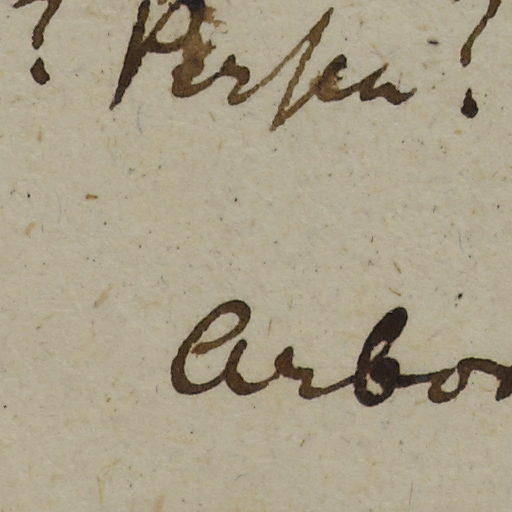 ? Persea ?
Arbor